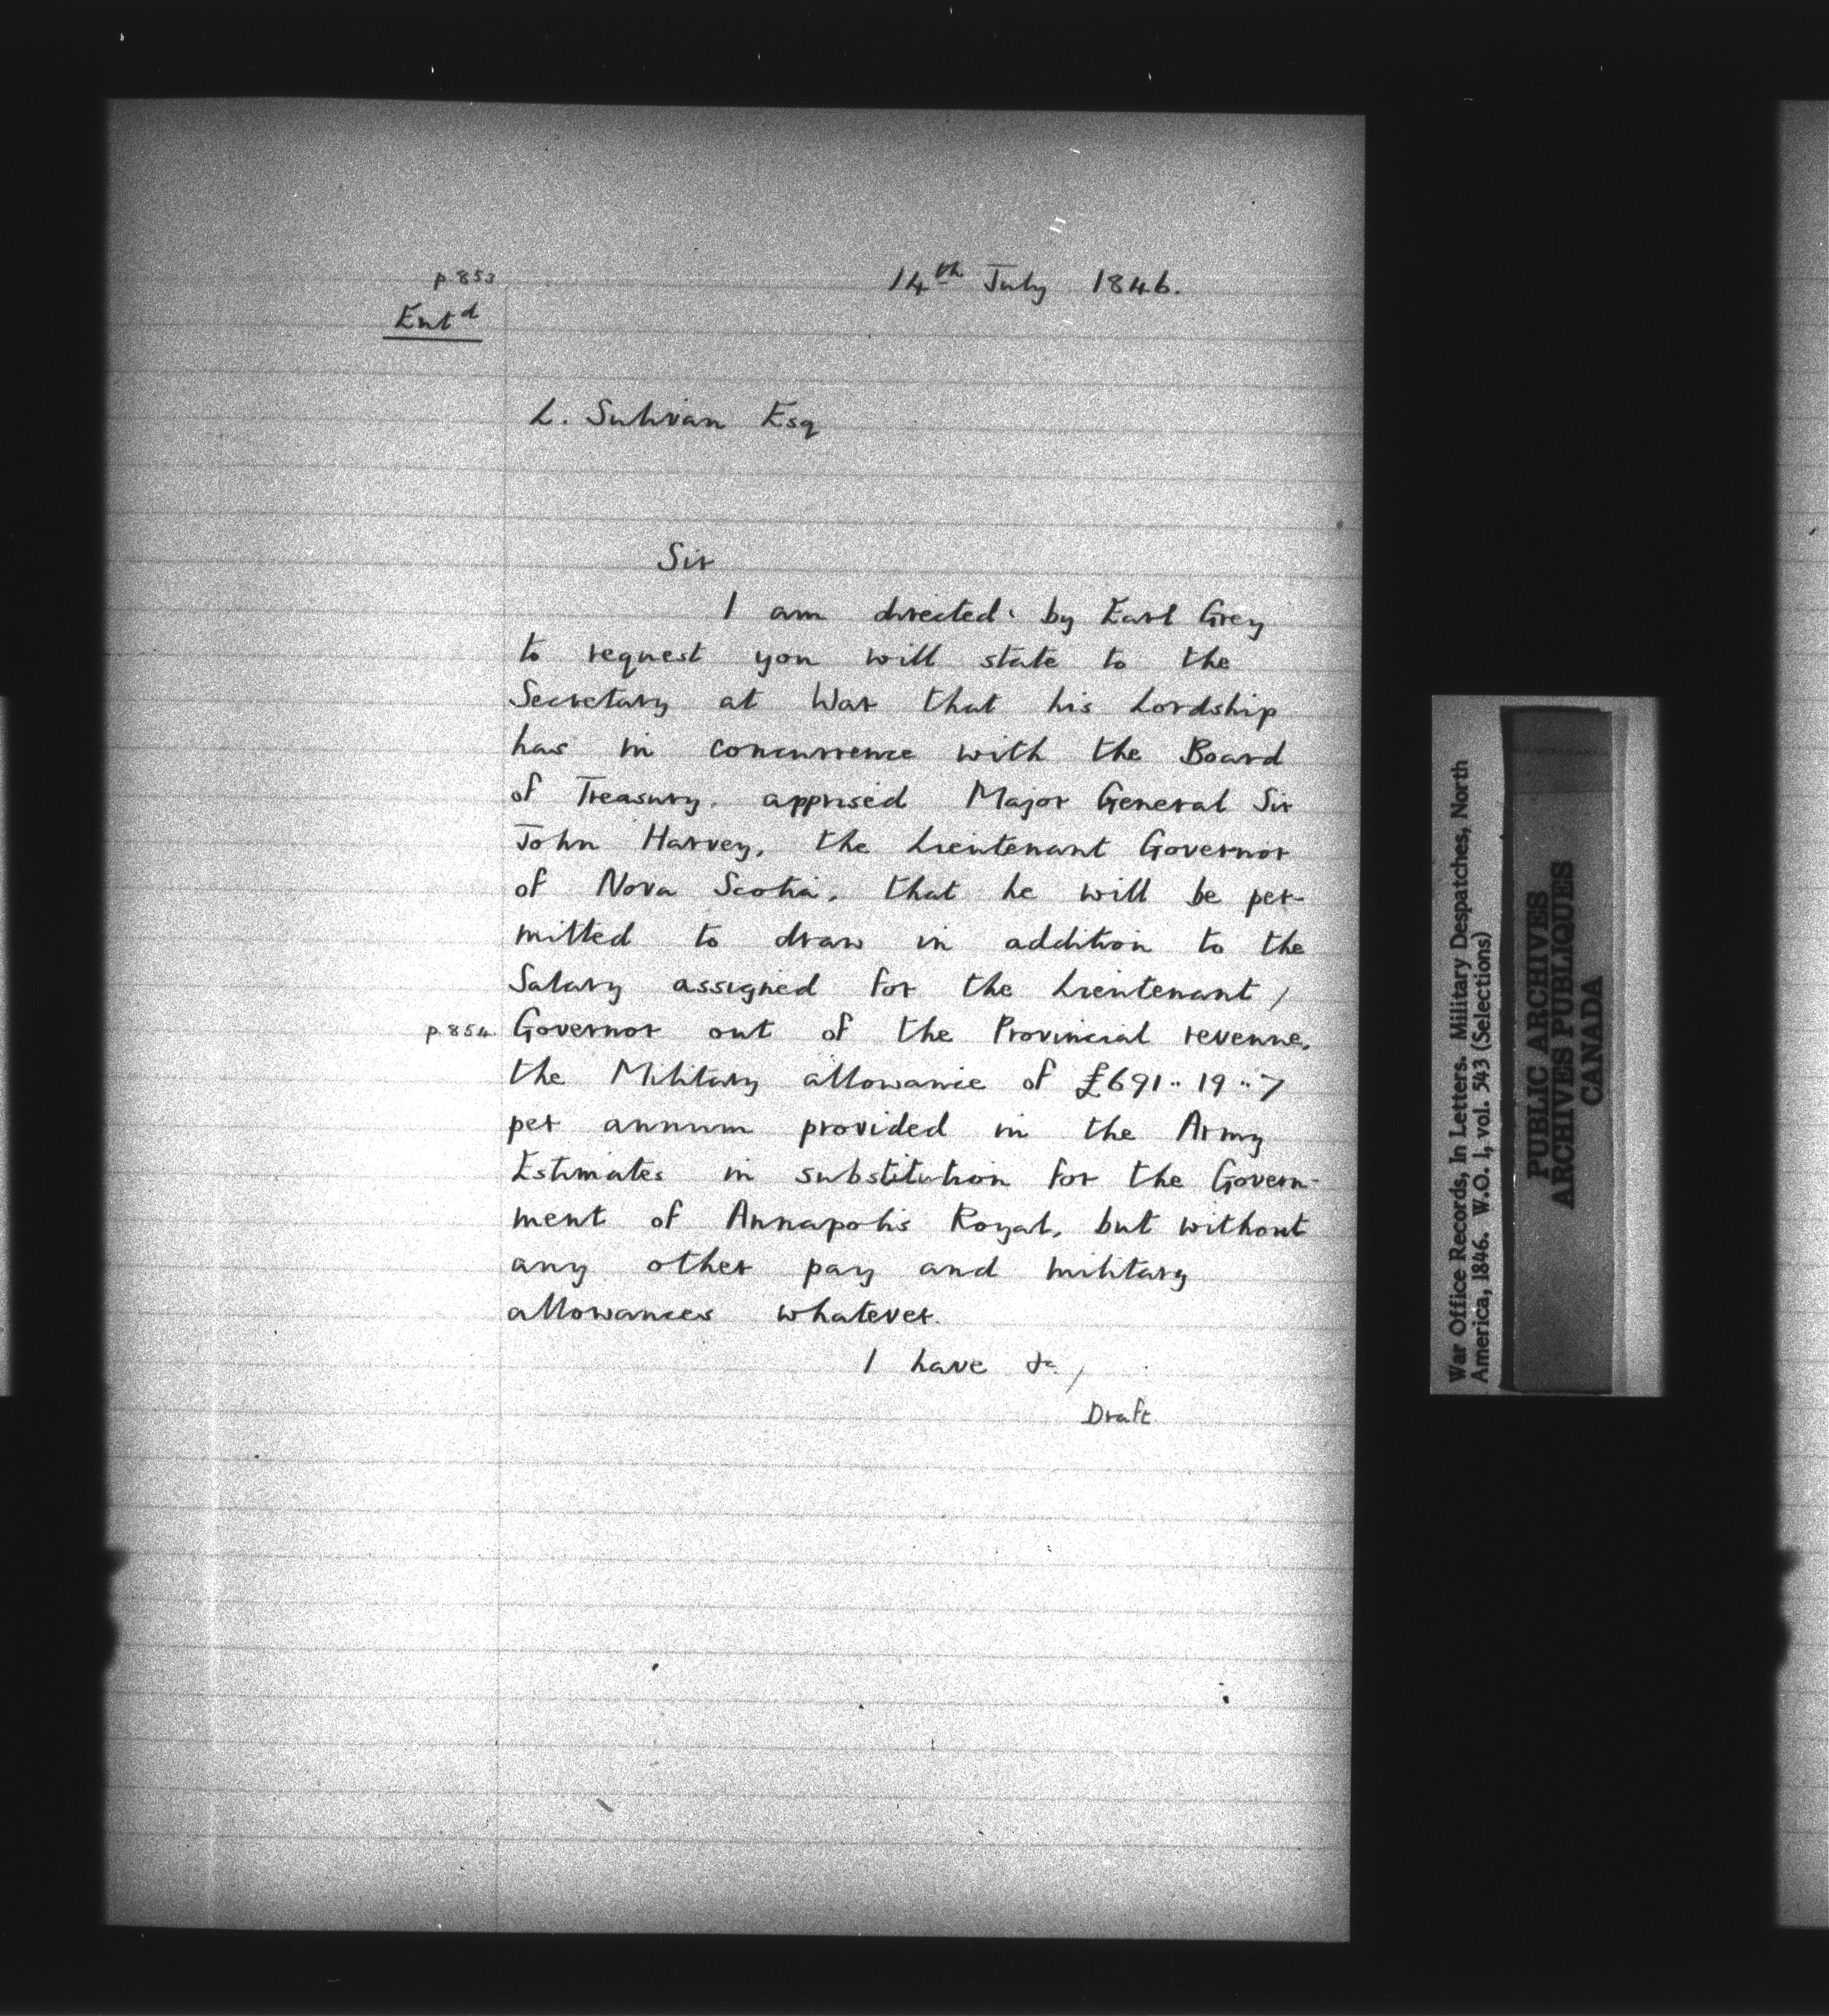 p.853
14th July 1846.
Entd
L. Sulivan Esq
Sir
I am directed by Earl Grey
to request you will state to the
Secretary at War that his Lordship
has in concurrence with the Board
of Treasury, apprised Major General Sir
John Harvey, the Lieutenant Governor
of Nova Scotia, that he will be per-
mitted to draw in addition to the
Salary assigned for the Lieutenant /
p.854 Governor out of the Provincial revenue,
the Military allowance of £691..19..7
per annum provided in the Army
Estimates in substitution for the Govern-
ment of Annapolis Royal, but without
any other pay and military
allowances whatever.
I have &c /
Draft
War Office Records, In Letters. Military Despatches, North
America, 1846. W.O. 1, vol. 543 (Selections)
PUBLIC ARCHIVES
ARCHIVES PUBLIQUES
CANADA